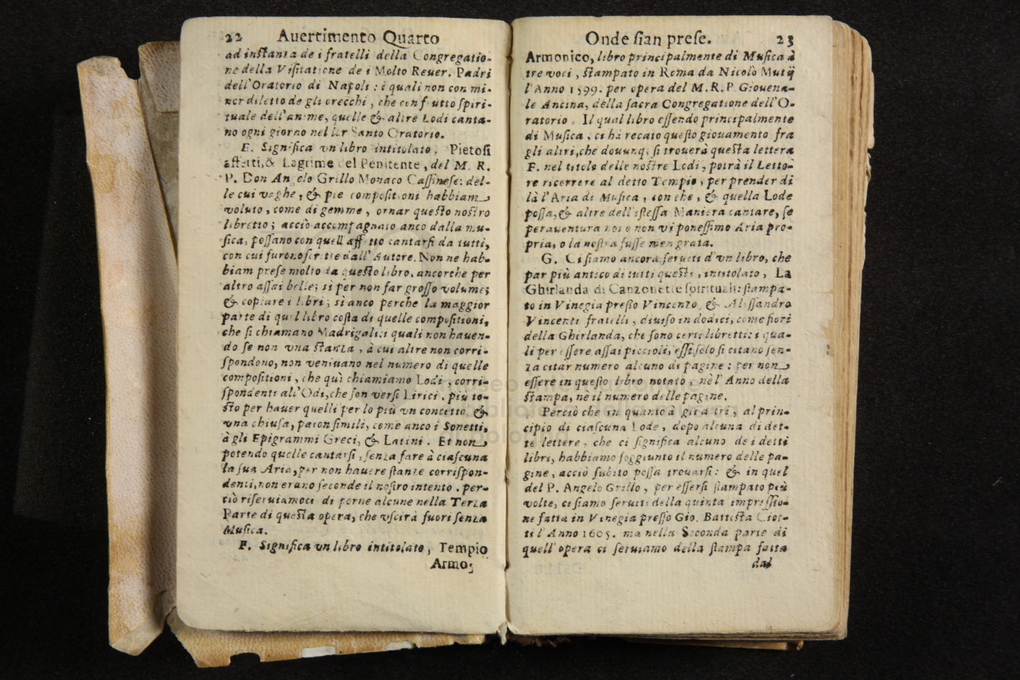 22 Auertimento Quarto
ad instanza de i fratelli della Congregatio-
ne della Visitatione de i Molto Reuer. Padri
dell'Oratorio di Napoli: i quali non con mi-
nor diletto de gli orecchi, che con frutto spiri-
tuale dell'anime, quelle & altre Lodi canta-
no ogni giorno nel lor Santo Oratorio.
E. Significa vn libro intitolato, Pietosi
affetti, & Lagrime del Penitente, del M. R.
P. Don Angelo Grillo Monaco Cassinese: del-
le cui vaghe, & pie compositioni habbiam
voluto, come di gemme, ornar questo nostro
libretto; acciò accompagnato anco dalla mu-
sica, possano con quell'affetto cantarsi da tutti,
con cui furono scritte dall'Autore. Non ne hab-
biam prese molto da questo libro, ancorche per
altro assai belle; sì per non far grosso volume;
& copiare i libri; sì anco perche la maggior
parte di quel libro costa di quelle compositioni,
che si chiamano Madrigali: i quali non hauen-
do se non vna stanza, à cui altre non corri-
spondono, non veniuano nel numero di quelle
compositioni, che quì chiamiamo Lodi, corri-
spondenti all'Odi, che son versi Lirici. più to-
sto per hauer quelli per lo più vn concetto, &
vna chiusa, paion simili, come anco i Sonetti,
à gli Epigrammi Greci, & Latini. Et non
potendo quelle cantarsi, senza fare à ciascuna
la sua Aria, per non hauere stanze corrispon-
denti, non erano secondo il nostro intento. per-
ciò riseruiamoci di porne alcune nella Terza
Parte di questa opera, che vscirà fuori senza
Musica.
F. Significa vn libro intitolato, Tempio
Armo-
Onde sian prese. 23
Armonico, libro principalmente di Musica à
tre voci, stampato in Roma da Nicolò Mutij
l'Anno 1599. per opera del M. R. P. Giouena-
le Ancina, della sacra Congregatione dell'O-
ratorio. Il qual libro essendo principalmente
di Musica, ci hà recato questo giouamento fra
gli altri, che douunq; si trouerà questa lettera
F. nel titolo delle nostre Lodi, potrà il Letto-
re ricorrere al detto Tempio, per prender di
là l'Aria di Musica, con che, & quella Lode
possa, & altre dell'istessa Maniera cantare, se
perauentura noi o non vi ponessimo Aria pro-
pria, o la nostra fusse men grata.
G. Ci siamo ancora seruiti d'vn libro, che
par più antico di tutti questi, intitolato, La
Ghirlanda di Canzonette spirituali: stampa-
to in Vinegia presso Vincenzo, & Alessandro
Vincenti fratelli, diuiso in dodici, come fiori
della Ghirlanda, che sono certi libretti: i qua-
li per essere assai piccioli, essi solo si citano sen-
za citar numero alcuno di pagine: per non
essere in questo libro notato, nè l'Anno della
stampa, ne il numero delle pagine.
Perciò che in quanto à gli altri, al prin-
cipio di ciascuna Lode, dopo alcuna di det-
te lettere, che ci significa alcuno de i detti
libri, habbiamo soggiunto il numero delle pa-
gine, acciò subito possa trouarsi: & in quel
del P. Angelo Grillo, per essersi stampato più
volte, ci siamo seruiti della quinta impressio-
ne fatta in Vinegia presso Gio. Battista Ciot-
ti l'Anno 1605. ma nella Seconda parte di
quell'opera ci seruiamo della stampa fatta
dal